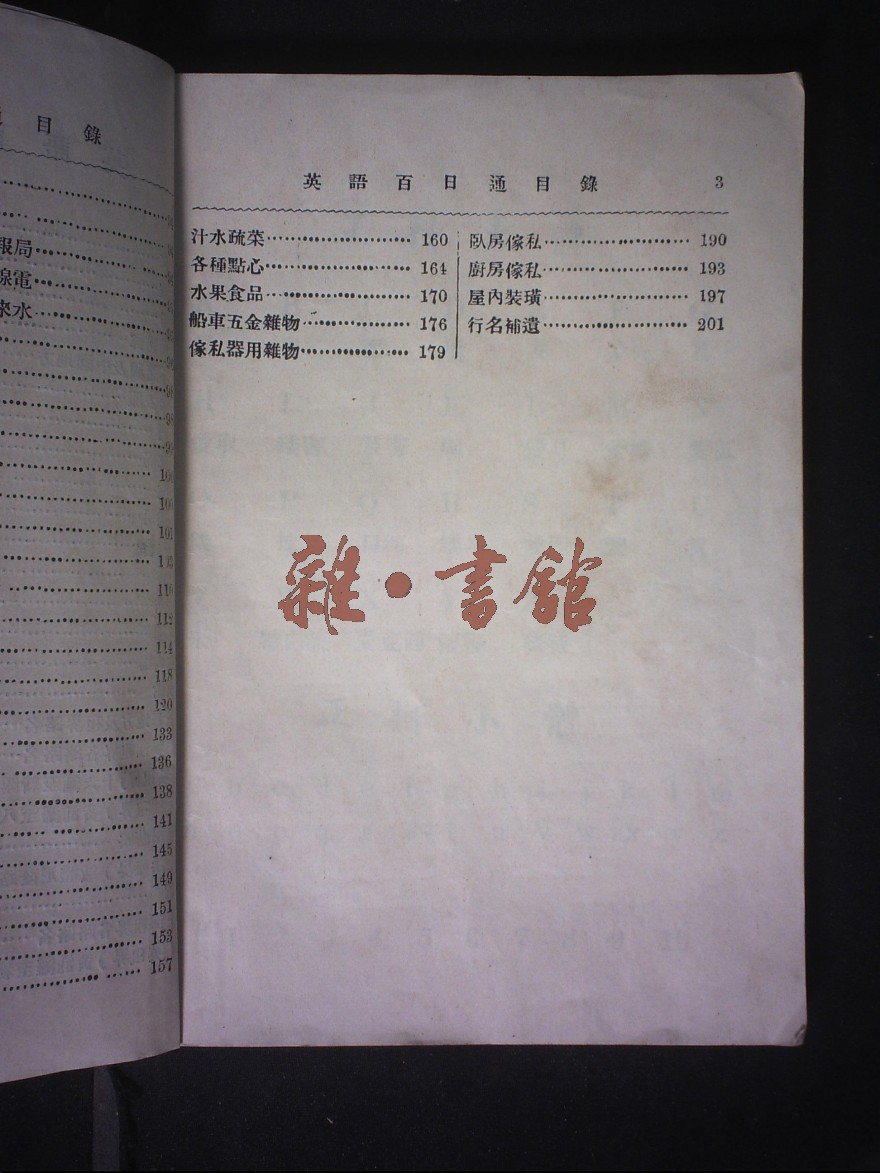 目錄
報局
線電
來水
98
99
100
100
101
103
110
112
114
118
120
133
136
138
141
145
149
151
153
157
英語百日通目錄 3
汁水疏菜 160
各種點心 164
水果食品 170
船車五金雜物 176
傢私器用雜物 179
臥房傢私 190
廚房傢私 193
屋內裝璜 197
行名補遺 201
雜·書館